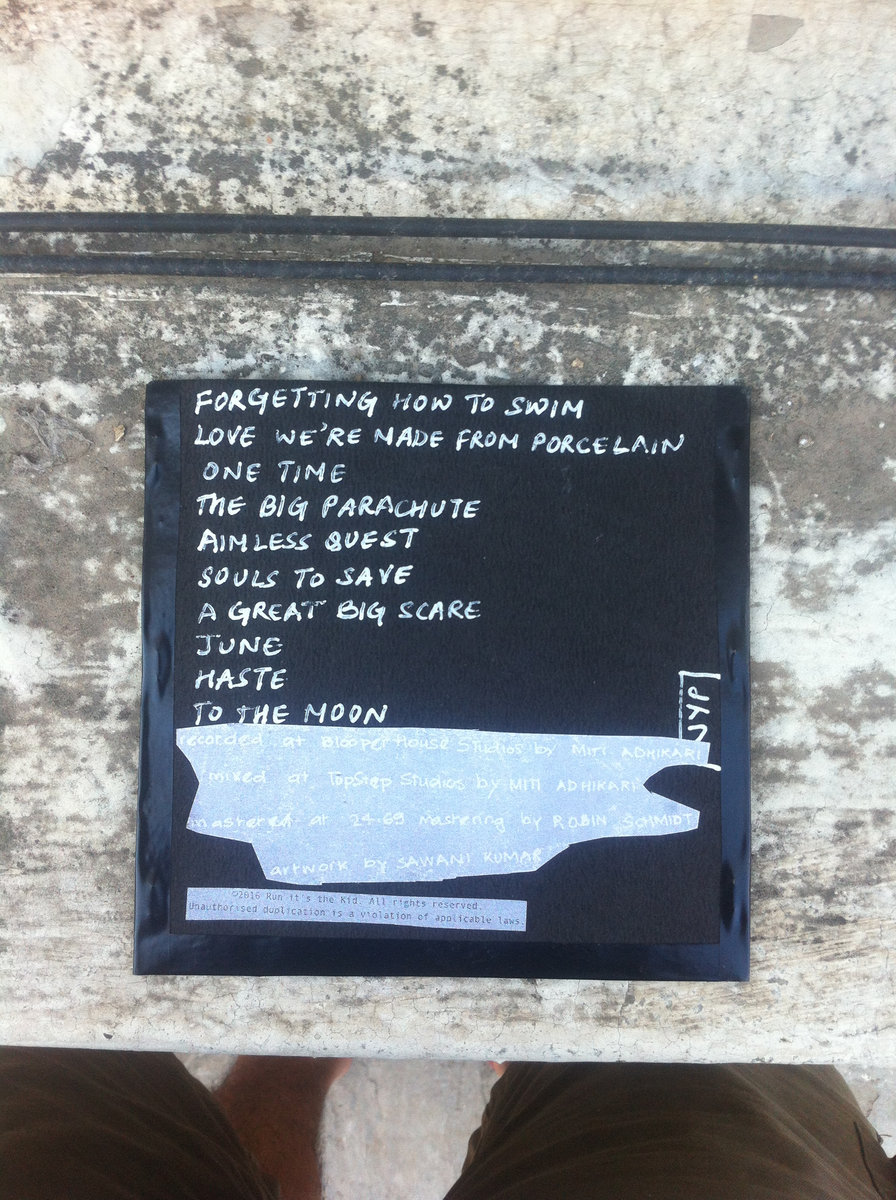 FORGETTING HOW TO SWIM
LOVE WE'RE MADE FROM PORCELAIN
ONE TIME
THE BIG PARACHUTE
AIMLESS QUEST
SOULS TO SAVE
A GREAT BIG SCARE
JUNE
HASTE
TO THE MOON
NYP
recorded at Blooper House Studios by MITI ADHIKARI
mixed at TopStep Studios by MITI ADHIKARI
mastered at 24-69 Mastering by ROBIN SCHMIDT
artwork by SAWANI KUMAR
©2016 Run it's the Kid. All rights reserved.
Unauthorised duplication is a violation of applicable laws.